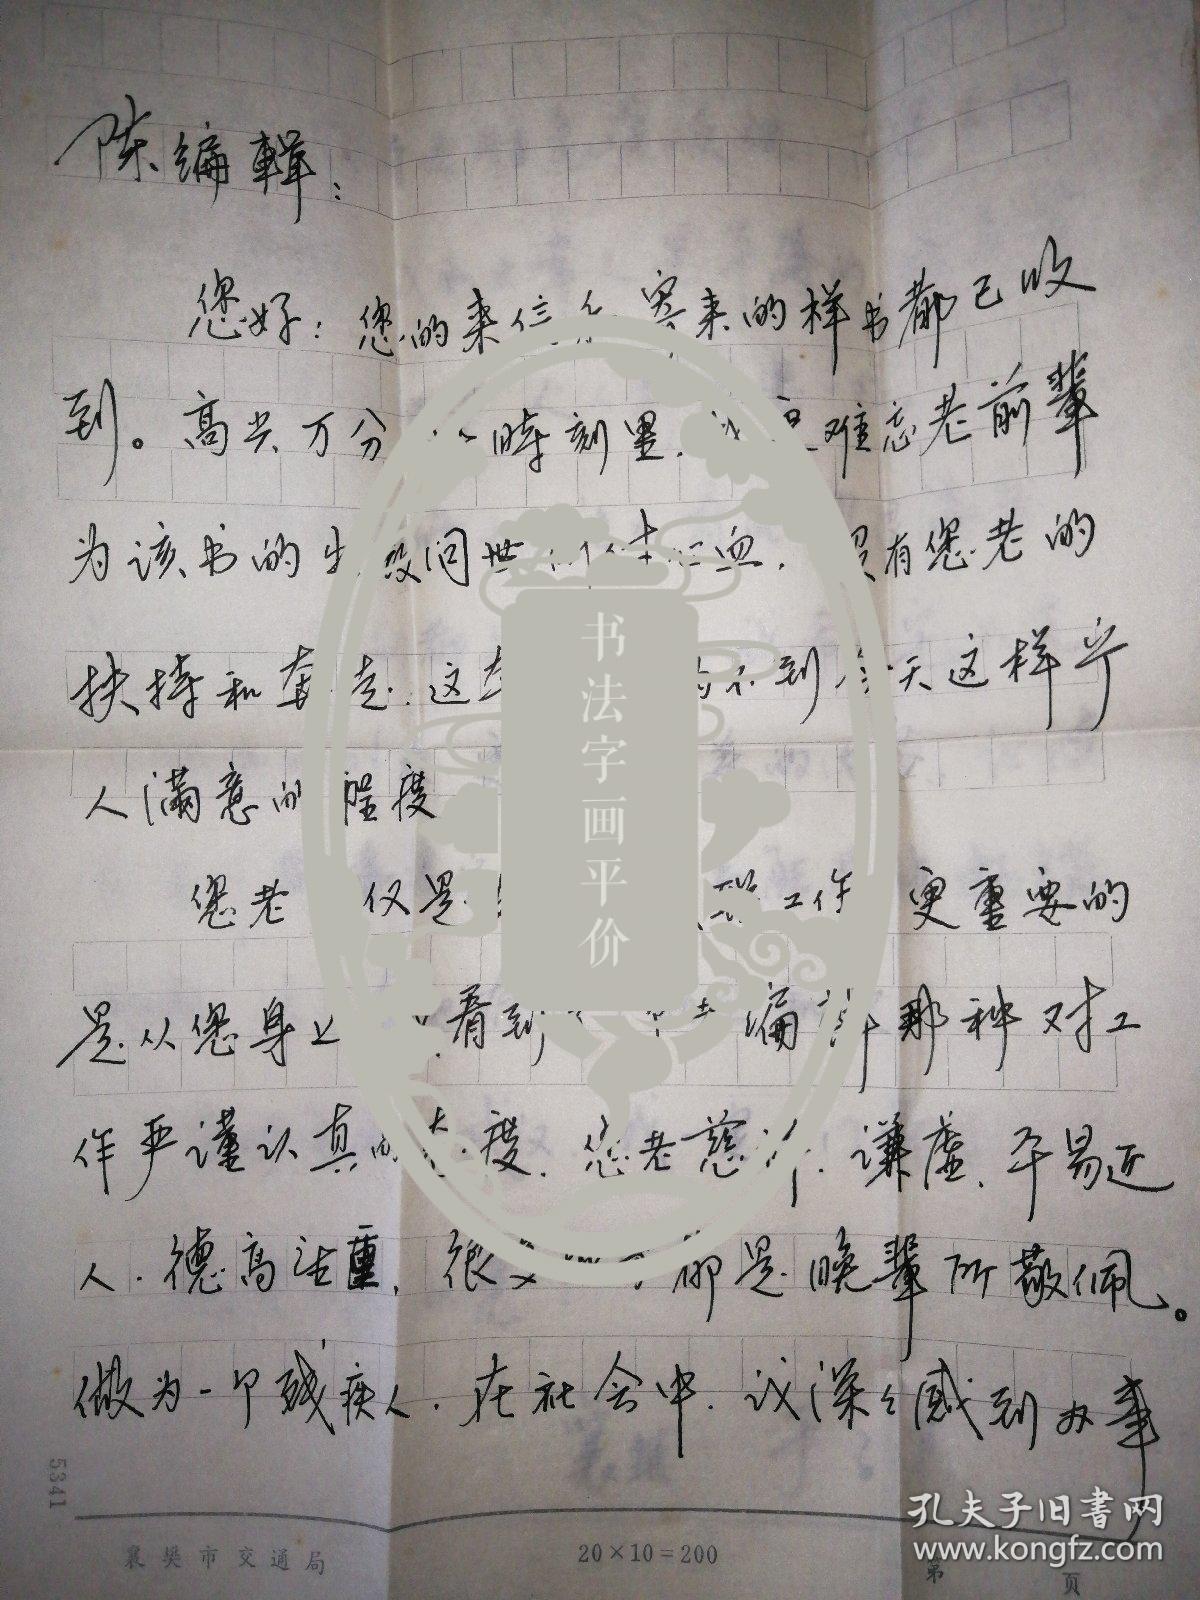 陈编辑：
您好：您的来信和寄来的样书都已收
到。高兴万分 时刻里， 难忘老前辈
为该书的 问世 血， 没有您老的
扶持和奔走，这 不到今天这样令
人满意的程度
您老 仅是 工作 更重要的
是从您身上 看到 编辑那种对工
作严谨认真的态度，您老慈祥，谦虚，平易近
人，德高望重，很 都是晚辈所敬佩。
做为一个残疾人，在社会中，议深々感到办事
书法字画平价
5341
襄樊市交通局
20×10=200
第 页
孔夫子旧书网
www.kongfz.com